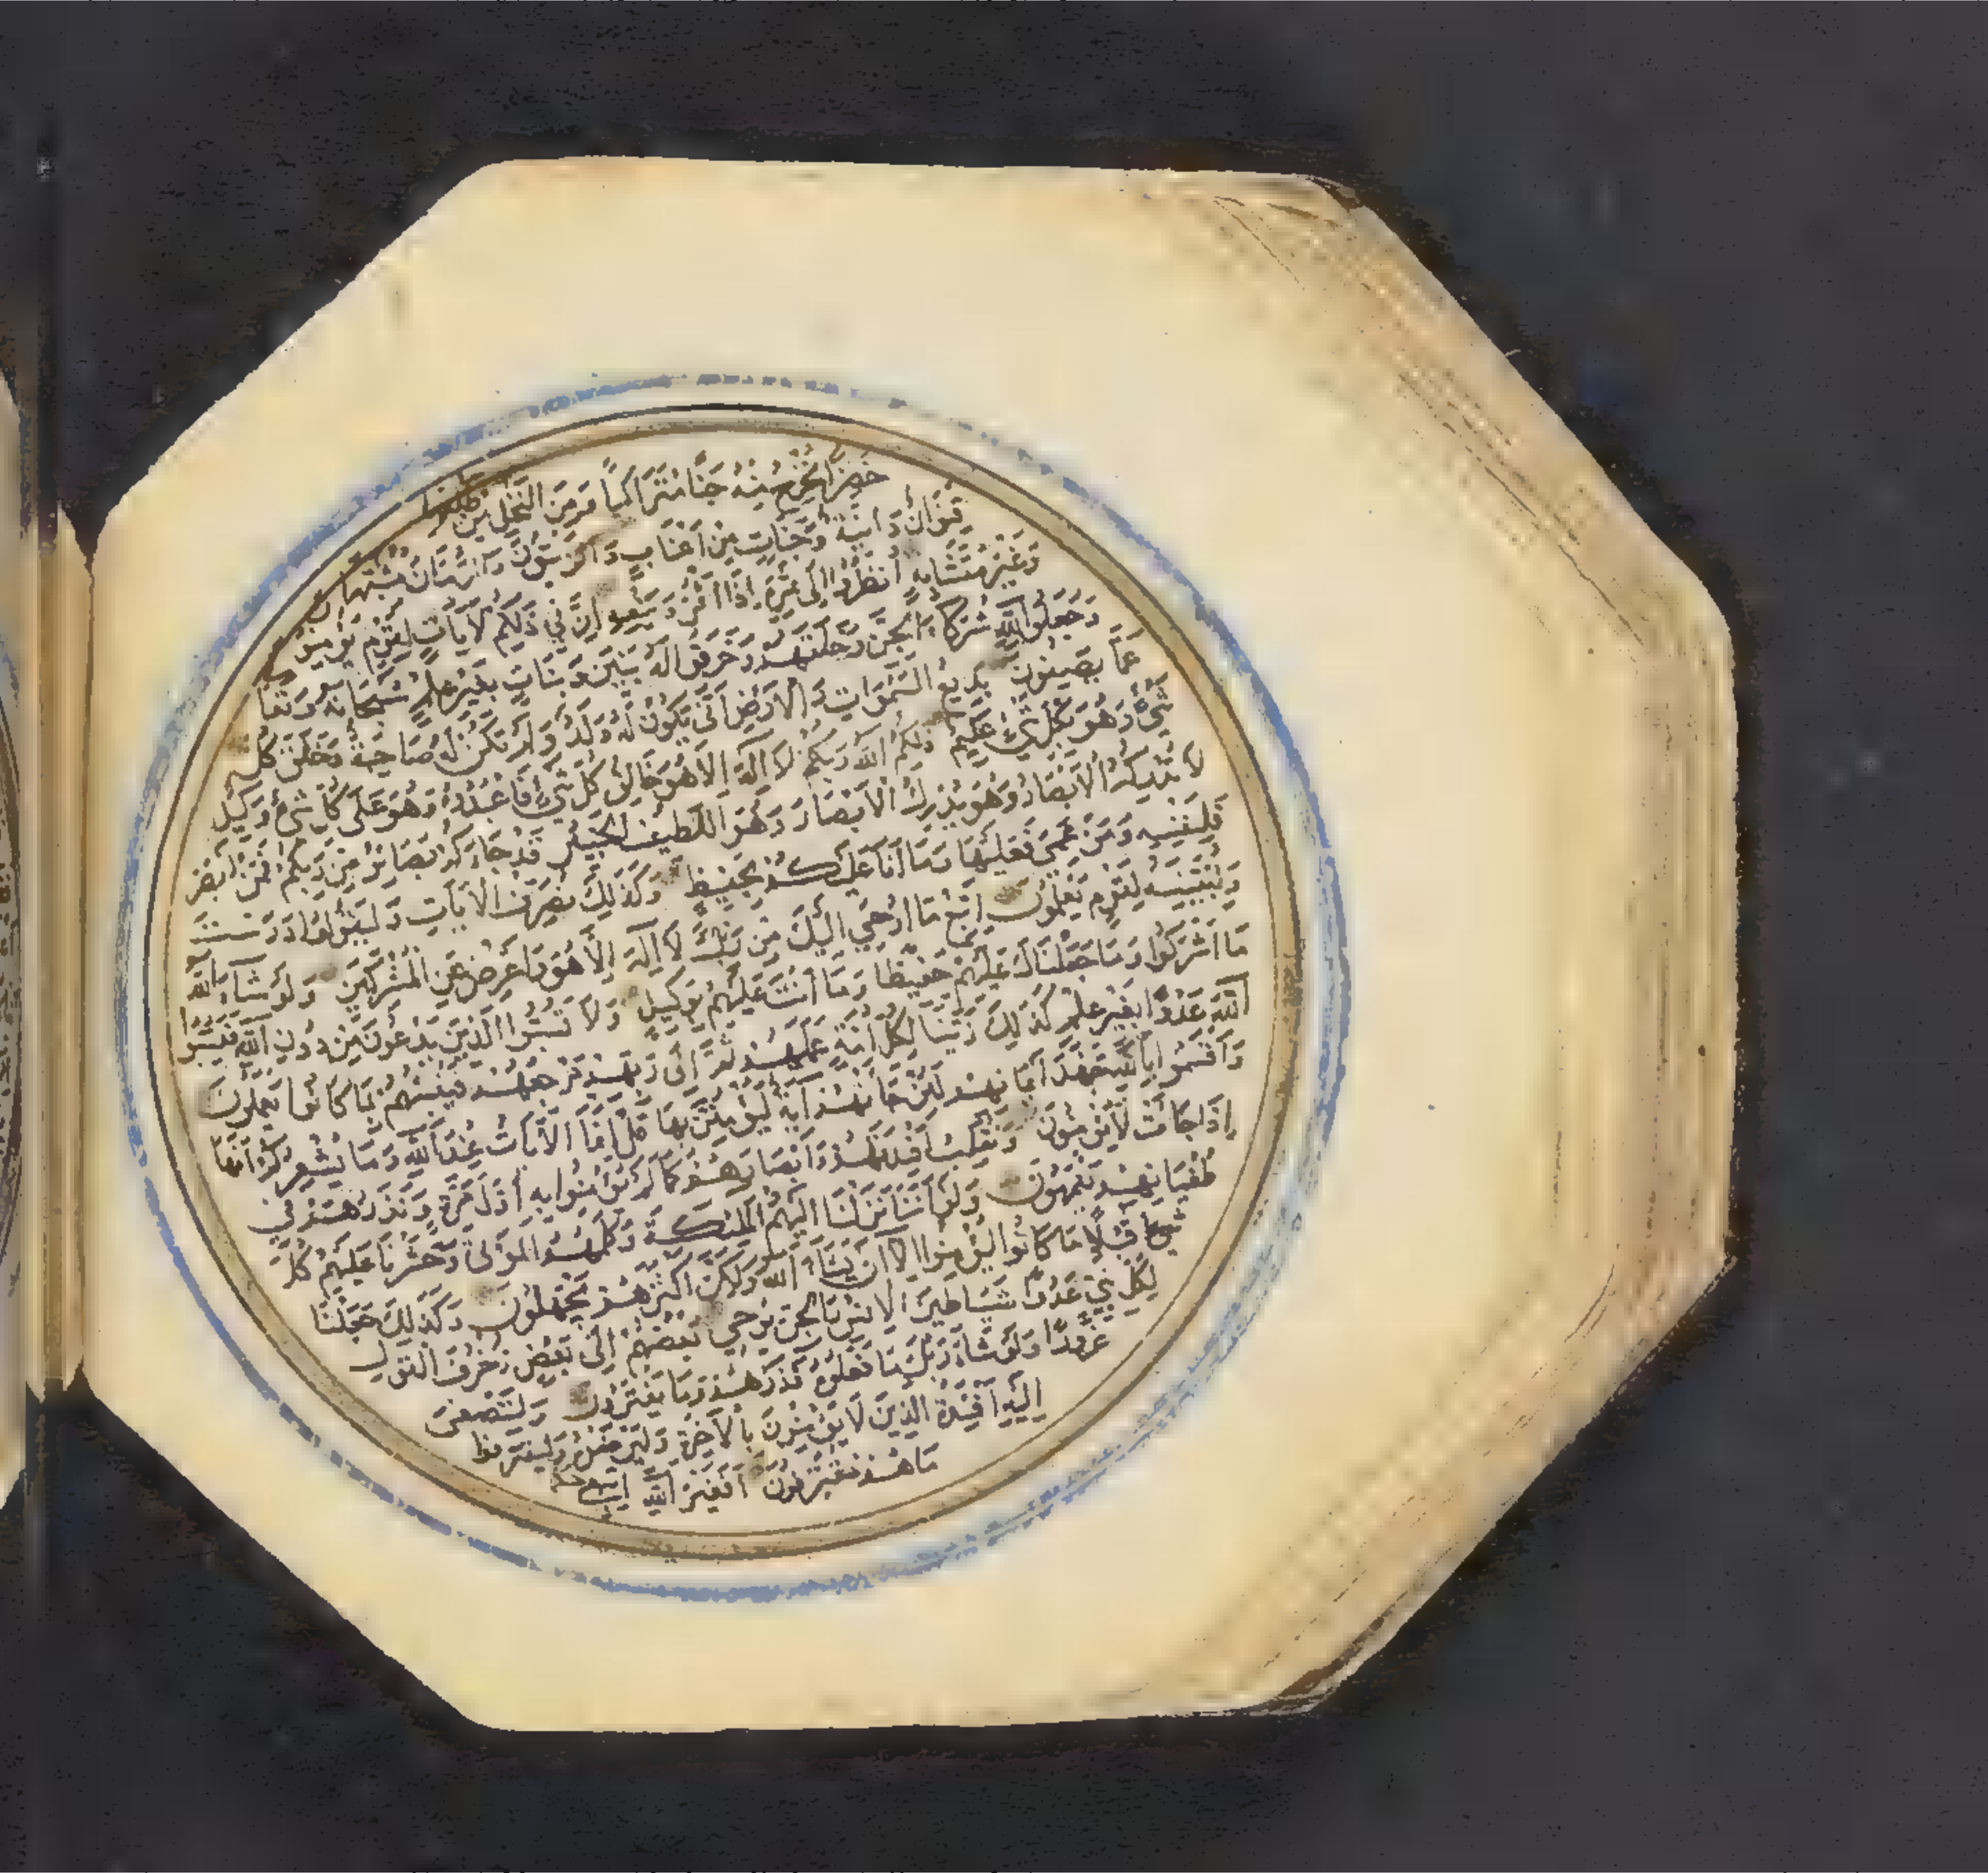 خضرا نخرج منه حبا متراكبا ومن النخل من طلعها
قنوان دانية وجنات من اعناب والزيتون والرمان مشتبها
وغير متشابه انظروا الى ثمره اذا اثمر وينعه ان في ذلكم لآيات لقوم يؤمنون
وجعلوا لله شركاء الجن وخلقهم وخرقوا له بنين وبنات بغير علم سبحانه وتعالى
عما يصفون بديع السموات والارض انى يكون له ولد ولم تكن له صاحبة وخلق كل
شيء وهو بكل شيء عليم ذلكم الله ربكم لا اله الا هو خالق كل شيء فاعبدوه وهو على كل شيء وكيل
لا تدركه الابصار وهو يدرك الابصار وهو اللطيف الخبير قد جاءكم بصائر من ربكم فمن ابصر
فلنفسه ومن عمي فعليها وما انا عليكم بحفيظ وكذلك نصرف الآيات وليقولوا درست
ولنبينه لقوم يعلمون اتبع ما اوحي اليك من ربك لا اله الا هو واعرض عن المشركين ولو شاء الله
ما اشركوا وما جعلناك عليهم حفيظا وما انت عليهم بوكيل ولا تسبوا الذين يدعون من دون الله فيسبوا
الله عدوا بغير علم كذلك زينا لكل امة عملهم ثم الى ربهم مرجعهم فينبئهم بما كانوا يعملون
واقسموا بالله جهد ايمانهم لئن جاءتهم آية ليؤمنن بها قل انما الآيات عند الله وما يشعركم انها
اذا جاءت لا يؤمنون ونقلب افئدتهم وابصارهم كما لم يؤمنوا به اول مرة ونذرهم في
طغيانهم يعمهون ولو اننا نزلنا اليهم الملئكة وكلمهم الموتى وحشرنا عليهم كل
شيء قبلا ما كانوا ليؤمنوا الا ان يشاء الله ولكن اكثرهم يجهلون وكذلك جعلنا
لكل نبي عدوا شياطين الانس والجن يوحي بعضهم الى بعض زخرف القول
غرورا ولو شاء ربك ما فعلوه فذرهم وما يفترون ولتصغى
اليه افئدة الذين لا يؤمنون بالآخرة وليرضوه وليقترفوا
ما هم مقترفون افغير الله ابتغي